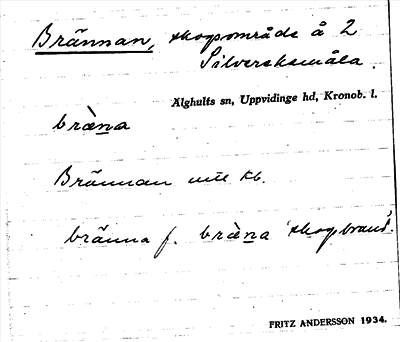 Brännan, skogsområde å 2
Silverekemåla.
Älghults sn, Uppvidinge hd, Kronob. l.
brὲna
Brännan utt kb.
bränna f. brὲna 'skogsbrand'.
FRITZ ANDERSSON 1934.